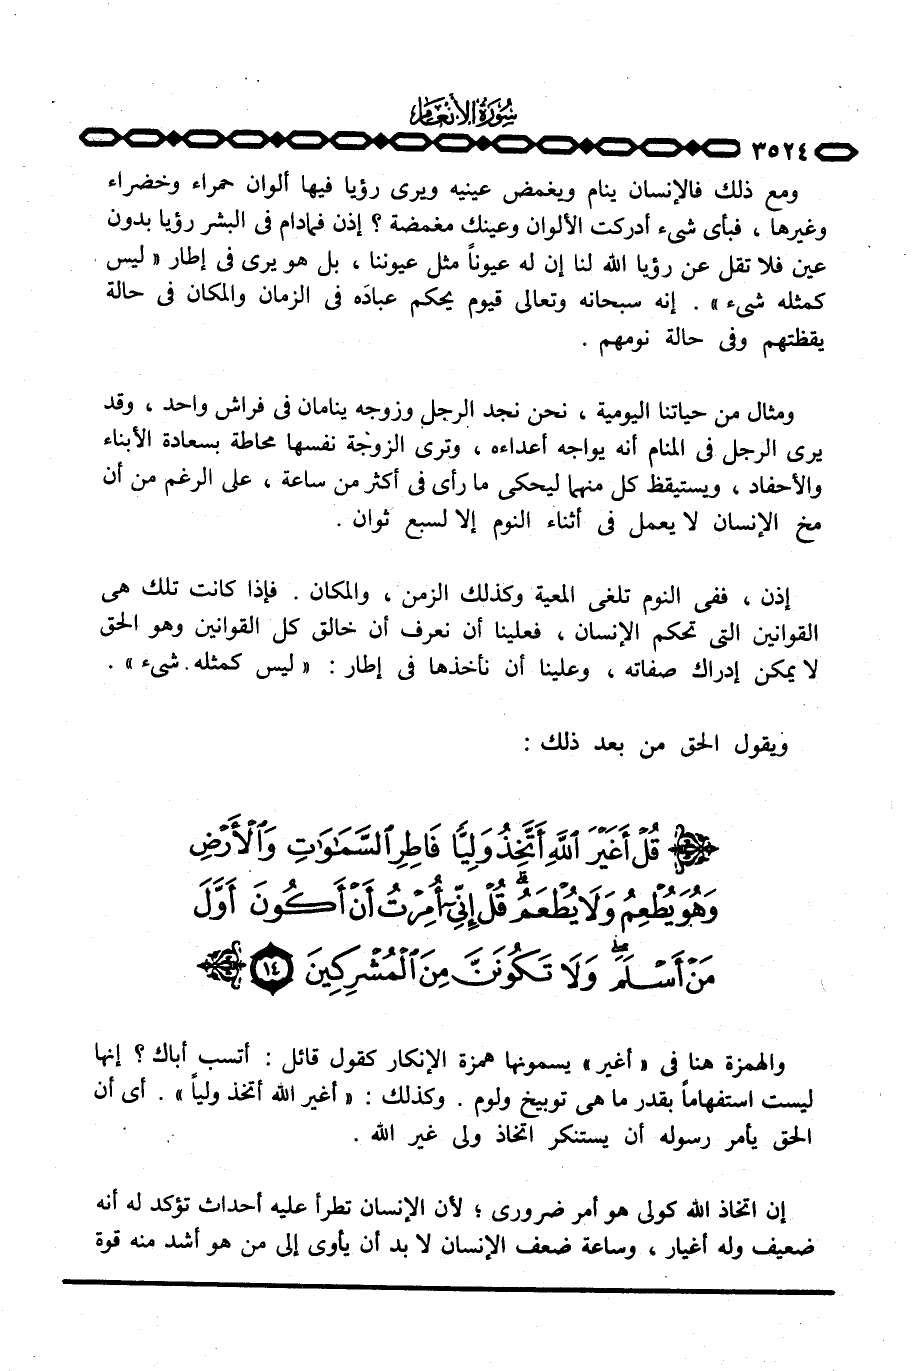 سورة الأنعام
٣٥٢٤
ومع ذلك فالإنسان ينام ويغمض عينيه ويرى رؤيا فيها ألوان حمراء وخضراء
وغيرها ، فبأى شىء أدركت الألوان وعينك مغمضة ؟ إذن فمادام فى البشر رؤيا بدون
عين فلا تقل عن رؤيا الله لنا إن له عيوناً مثل عيوننا ، بل هو يرى فى إطار « ليس
كمثله شىء » . إنه سبحانه وتعالى قيوم يحكم عباده فى الزمان والمكان فى حالة
يقظتهم وفى حالة نومهم .
ومثال من حياتنا اليومية ، نحن نجد الرجل وزوجه ينامان فى فراش واحد ، وقد
يرى الرجل فى المنام أنه يواجه أعداءه ، وترى الزوجة نفسها محاطة بسعادة الأبناء
والأحفاد ، ويستيقظ كل منهما ليحكى ما رأى فى أكثر من ساعة ، على الرغم من أن
مخ الإنسان لا يعمل فى أثناء النوم إلا لسبع ثوان .
إذن ، ففى النوم تلغى المعية وكذلك الزمن ، والمكان . فإذا كانت تلك هى
القوانين التى تحكم الإنسان ، فعلينا أن نعرف أن خالق كل القوانين وهو الحق
لا يمكن إدراك صفاته ، وعلينا أن نأخذها فى إطار : « ليس كمثله شىء » .
ويقول الحق من بعد ذلك :
﴿ قُلْ أَغَيْرَ ٱللَّهِ أَتَّخِذُ وَلِيًّا فَاطِرِ ٱلسَّمَٰوَٰتِ وَٱلْأَرْضِ
وَهُوَ يُطْعِمُ وَلَا يُطْعَمُ ۗ قُلْ إِنِّىٓ أُمِرْتُ أَنْ أَكُونَ أَوَّلَ
مَنْ أَسْلَمَ ۖ وَلَا تَكُونَنَّ مِنَ ٱلْمُشْرِكِينَ ١٤ ﴾
والهمزة هنا فى « أغير » يسمونها همزة الإنكار كقول قائل : أتسب أباك ؟ إنها
ليست استفهاماً بقدر ما هى توبيخ ولوم . وكذلك : « أغير الله أتخذ ولياً » . أى أن
الحق يأمر رسوله أن يستنكر اتخاذ ولى غير الله .
إن اتخاذ الله كولى هو أمر ضرورى ؛ لأن الإنسان تطرأ عليه أحداث تؤكد له أنه
ضعيف وله أغيار ، وساعة ضعف الإنسان لا بد أن يأوى إلى من هو أشد منه قوة